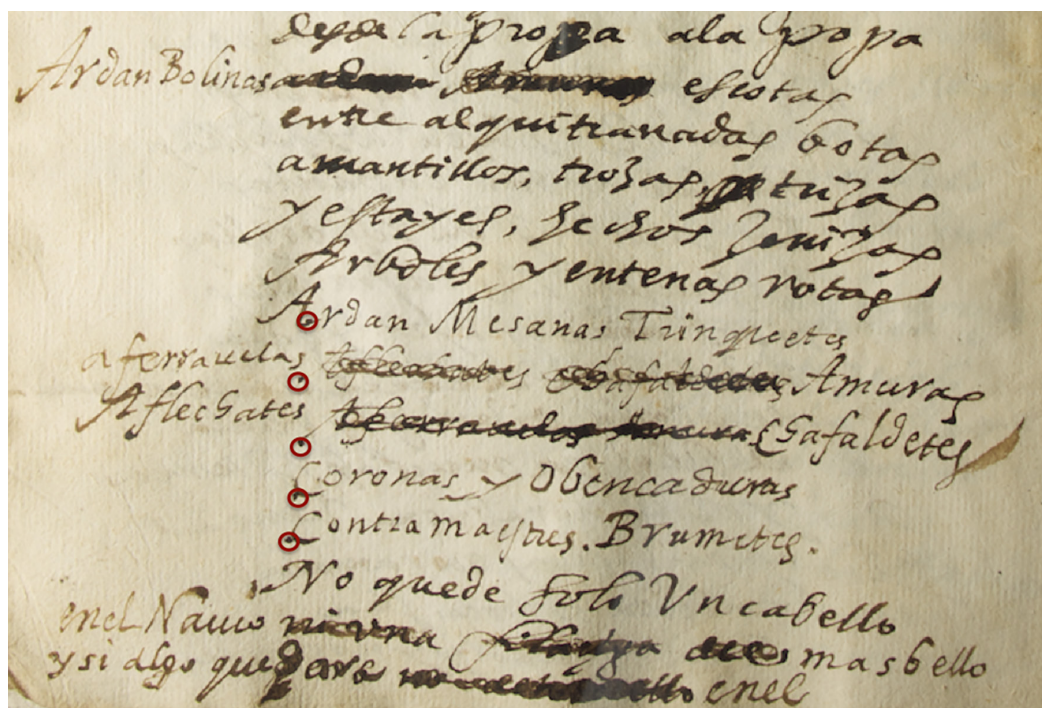 desde la propza ala popa
Ardan Bolinas escotas
entre alquitranadas botas
amantillos, trozas, trizas
y estayes, hechos zenizas
Arboles y entenas rotas
Ardan Mesanas Trinquetes
aferrauelas Amuras
Aflechates Chafaldetes
Coronas y Obencaduras
Contramaestres. Brumetes.
No quede solo Vn cabello
enel Nauio mas bello
y si algo quedare enel